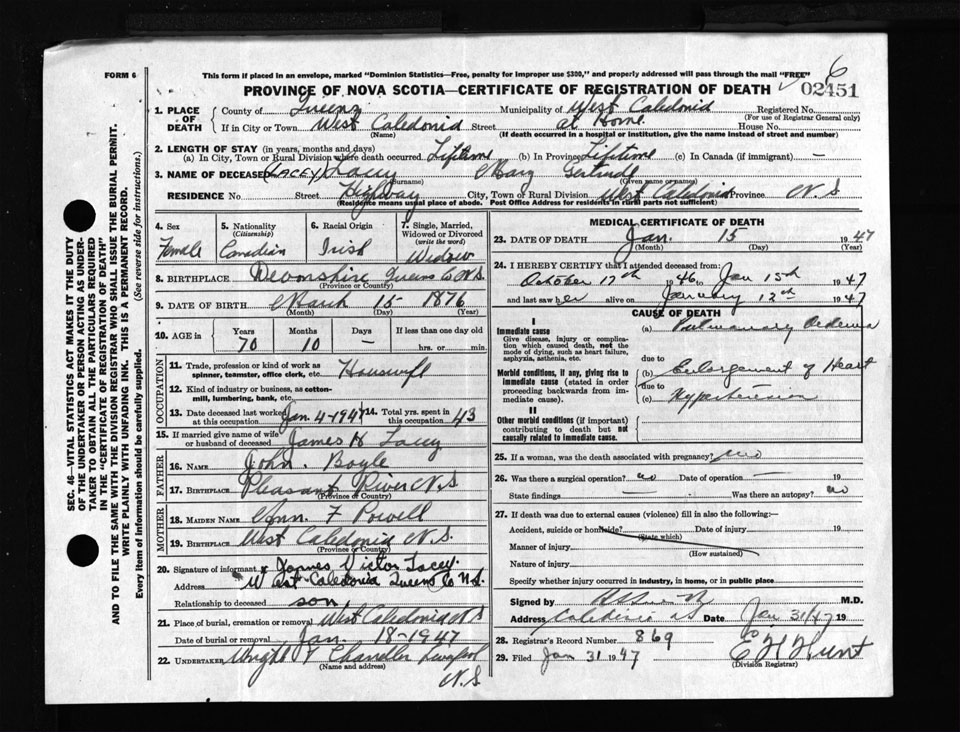 FORM 6
This form if placed in an envelope, marked "Dominion Statistics—Free, penalty for improper use $300," and properly addressed will pass through the mail "FREE"
6
PROVINCE OF NOVA SCOTIA—CERTIFICATE OF REGISTRATION OF DEATH
02451
1. PLACE OF DEATH
County of Queens Municipality of West Caledonia Registered No.
(For use of Registrar General only)
If in City or Town West Caledonia Street at Home House No.
(Name) (If death occurred in a hospital or institution, give the name instead of street and number)
2. LENGTH OF STAY (in years, months and days)
(a) In City, Town or Rural Division where death occurred Lifetime (b) In Province Lifetime (c) In Canada (if immigrant) —
3. NAME OF DECEASED (LACEY) Lacey Mary Gertrude
(Surname) (Given name or names)
RESIDENCE No. Street Highway City, Town or Rural Division West Caledonia Province N.S
(Residence means usual place of abode. Post Office Address for residents in rural parts not sufficient)
4. Sex
Female
5. Nationality
(Citizenship)
Canadian
6. Racial Origin
Irish
7. Single, Married, Widowed or Divorced
(write the word)
Widow
8. BIRTHPLACE Devonshire Queens Co N.S.
(Province or Country)
9. DATE OF BIRTH March 15 1876
(Month) (Day) (Year)
10. AGE in
Years Months Days If less than one day old
70 10 — hrs. or min.
OCCUPATION
11. Trade, profession or kind of work as
spinner, teamster, office clerk, etc. Housewife
12. Kind of industry or business, as cotton-
mill, lumbering, bank, etc.
13. Date deceased last worked at this occupation Jan 4-1947
14. Total yrs. spent in this occupation 43
15. If married give name of wife or husband of deceased James H Lacey
FATHER
16. NAME John. Boyle
17. BIRTHPLACE Pleasant River N.S
(Province or Country)
MOTHER
18. MAIDEN NAME Ann. F Powell
19. BIRTHPLACE West Caledonia N.S.
(Province or Country)
20. Signature of informant James Victor Lacey.
Address West Caledonia Queens Co N.S.
Relationship to deceased son
21. Place of burial, cremation or removal West Caledonia N.S
Date of burial or removal Jan. 18-1947
22. UNDERTAKER Wright & Chandler Liverpool
(Name and address)
N.S
MEDICAL CERTIFICATE OF DEATH
23. DATE OF DEATH Jan. 15 1947
(Month) (Day) (Year)
24. I HEREBY CERTIFY that I attended deceased from:
October 17th 1946 to Jan 15th 1947
and last saw her alive on January 12th 1947
CAUSE OF DEATH
I
Immediate cause
Give disease, injury or complica-
tion which caused death, not the
mode of dying, such as heart failure,
asphyxia, asthenia, etc.
(a) Pulmonary Oedema
due to
Morbid conditions, if any, giving rise to
immediate cause (stated in order
proceeding backwards from im-
mediate cause).
(b) Enlargement of Heart
due to
(c) Hypertension
II
Other morbid conditions (if important)
contributing to death but not
causally related to immediate cause.
25. If a woman, was the death associated with pregnancy? no
26. Was there a surgical operation? no Date of operation — 19
State findings — Was there an autopsy? no
27. If death was due to external causes (violence) fill in also the following:—
Accident, suicide or homicide? Date of injury 19
(State which)
Manner of injury
(How sustained)
Nature of injury
Specify whether injury occurred in industry, in home, or in public place
Signed by M.D.
Address Caledonia NS Date Jan 31/47 19
28. Registrar's Record Number 869
29. Filed Jan 31 1947 E H Hunt
(Division Registrar)
SEC. 46—VITAL STATISTICS ACT MAKES IT THE DUTY
OF THE UNDERTAKER OR PERSON ACTING AS UNDER-
TAKER TO OBTAIN ALL THE PARTICULARS REQUIRED
IN THE "CERTIFICATE OF REGISTRATION OF DEATH"
AND TO FILE THE SAME WITH THE DIVISION REGISTRAR WHO SHALL ISSUE THE BURIAL PERMIT.
WRITE PLAINLY WITH UNFADING INK. THIS IS A PERMANENT RECORD.
Every item of information should be carefully supplied. (See reverse side for instructions.)